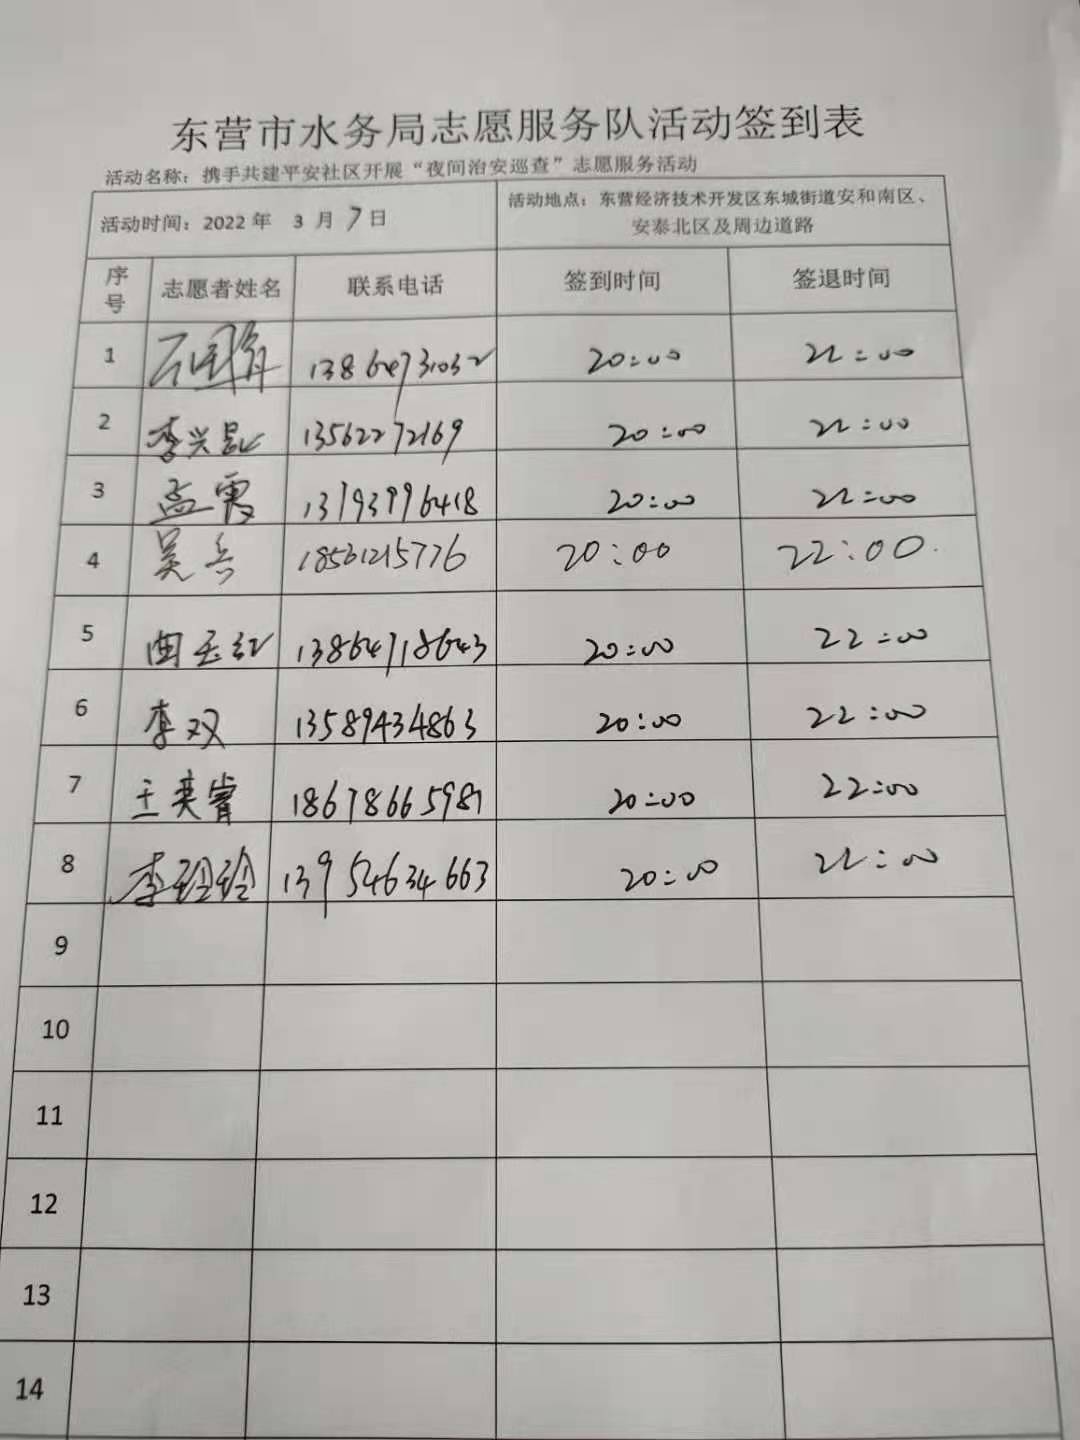 东营市水务局志愿服务队活动签到表
活动名称：携手共建平安社区开展“夜间治安巡查”志愿服务活动
活动时间：2022年 3月7日
活动地点：东营经济技术开发区东城街道安和南区、
安泰北区及周边道路
序号 志愿者姓名 联系电话 签到时间 签退时间
1 13864731032 20:00 22:00
2 李兴昆 13562272169 20:00 22:00
3 孟霞 13793996418 20:00 22:00
4 吴兵 18561215776 20:00 22:00
5 13864718643 20:00 22:00
6 李双 13589434863 20:00 22:00
7 王奕睿 18678665981 20:00 22:00
8 李玲玲 13954634663 20:00 22:00
9
10
11
12
13
14